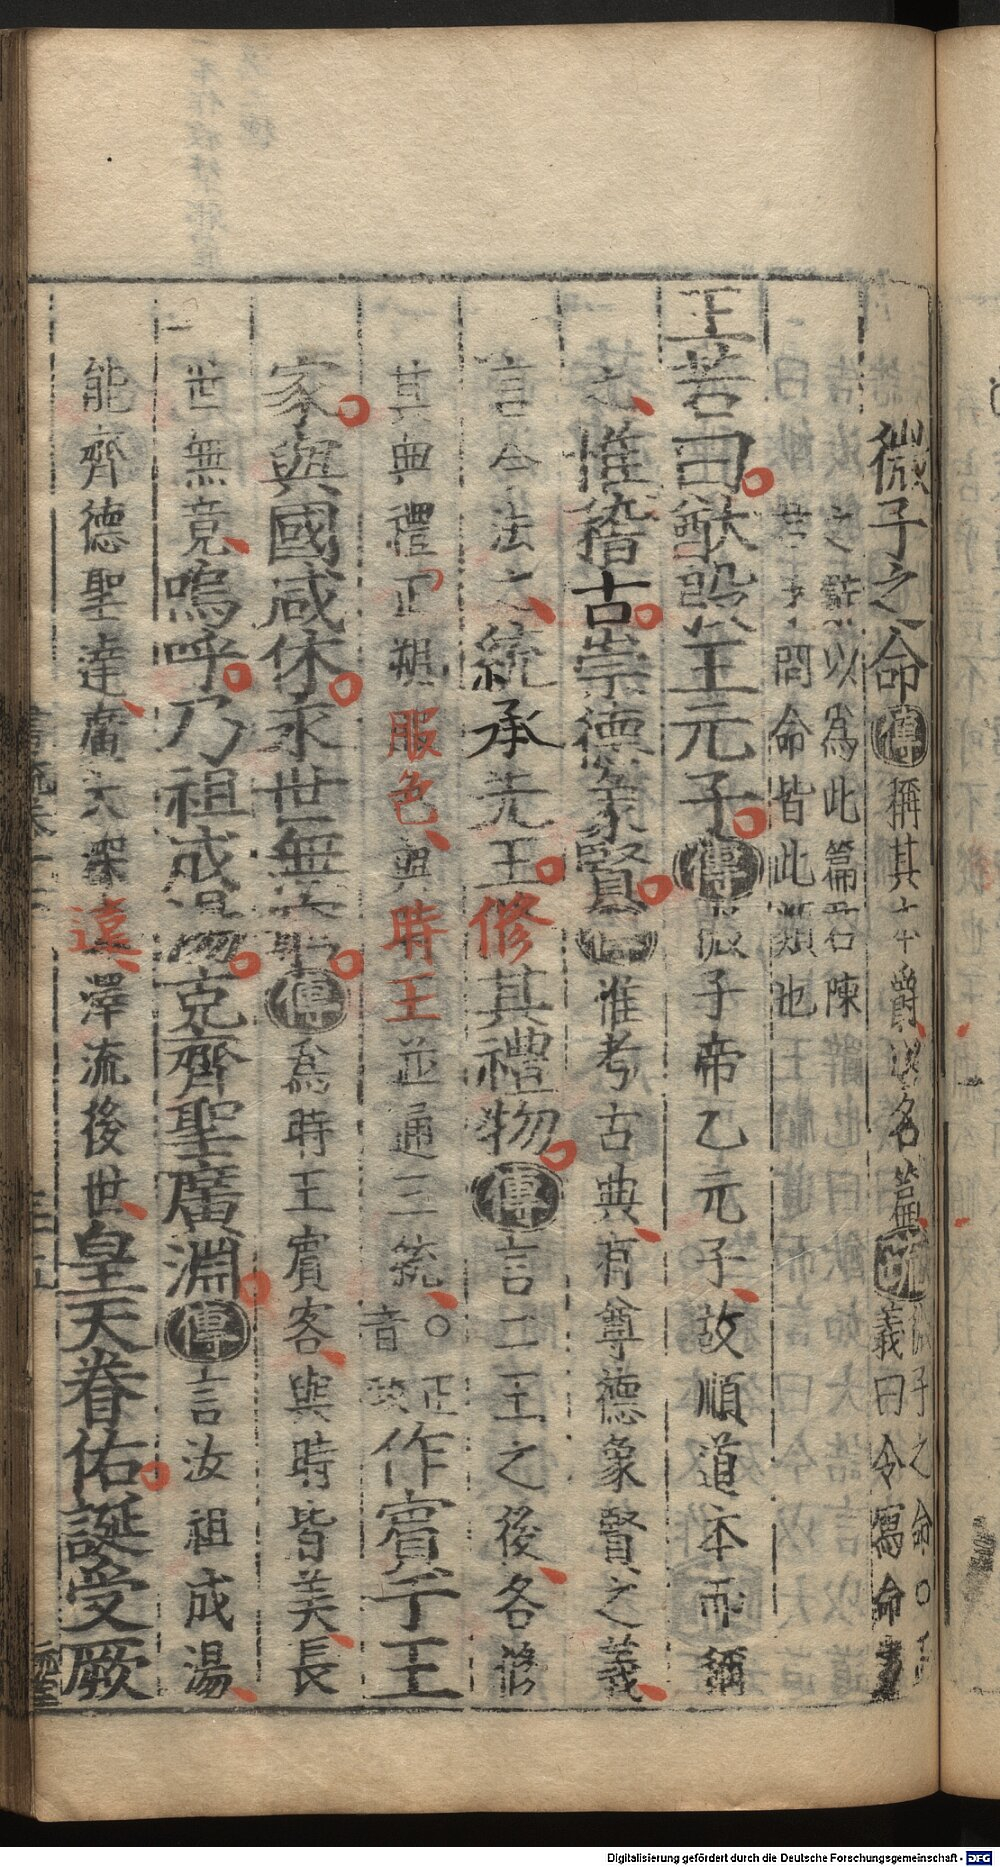 微子之命傳稱其本爵以名篇疏微子之命○正
義曰令寫命書
之辭以為此篇君陳
君牙冏命皆此類也
王若曰猷殷王元子傳微子帝乙元子故順道本而稱
之惟稽古崇德象賢傳惟考古典有尊德象賢之義
言今法之統承先王修其禮物傳言二王之後各脩
其典禮正朔服色與時王並通三統○音正
政作賓于王
家與國咸休永世無窮傳為時王賓客與時皆美長
世無竟嗚呼乃祖成湯克齊聖廣淵傳言汝祖成湯
能齊德聖達廣大深遠澤流後世皇天眷佑誕受厥
Digitalisierung gefördert durch die Deutsche Forschungsgemeinschaft - DFG